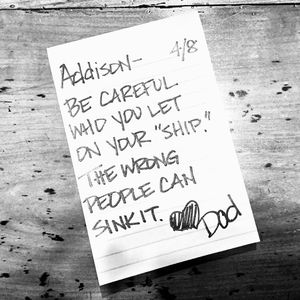 Addison- 4/8
BE CAREFUL
WHO YOU LET
ON YOUR "SHIP."
THE WRONG
PEOPLE CAN
SINK IT. Dad